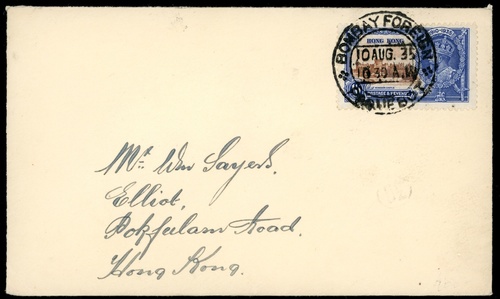 BOMBAY FOREIGN
HONG KONG
10 AUG. 35
10 35 A.M
POSTAGE & REVENUE
Mr. Wm Sayers,
Elliot,
Pokfulam Road.
Hong Kong.